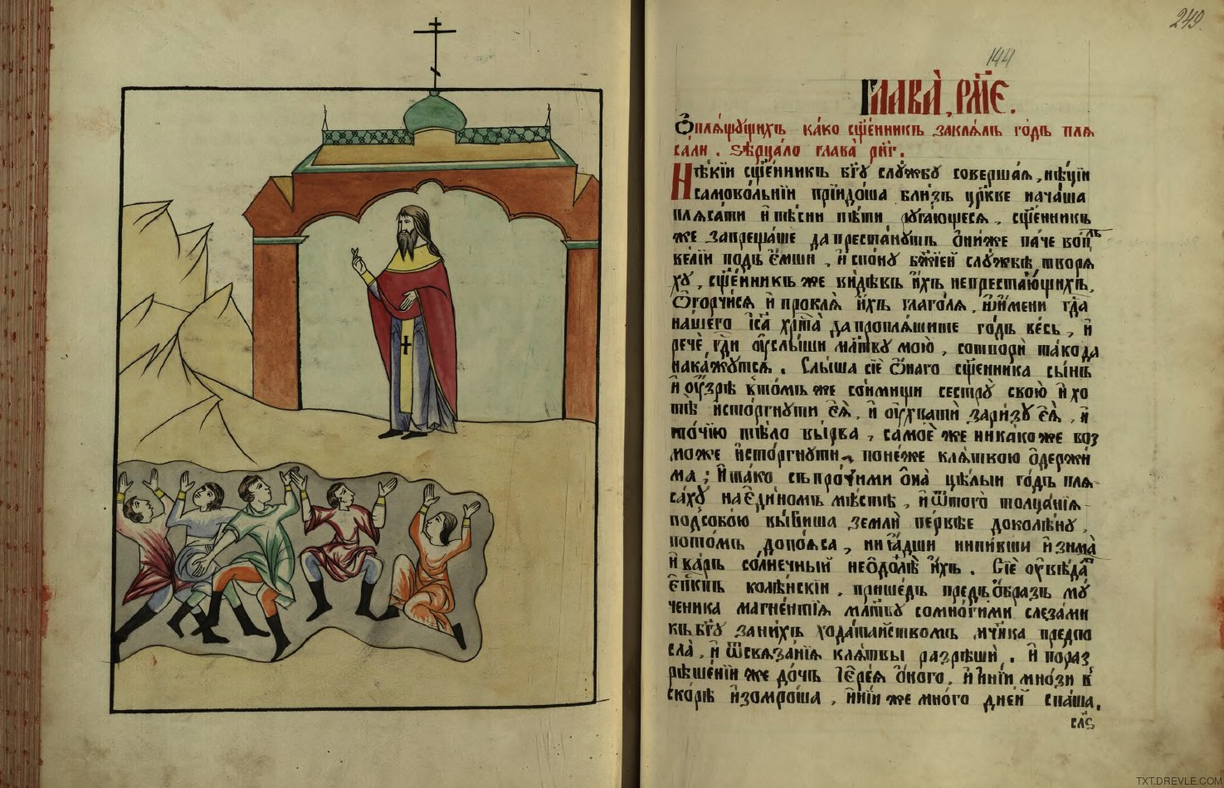 249
144
Глава̀, рм҃е.
Ѡ плѧшꙋщихъ како сщ҃е́нникъ заклѧ́лъ го́дъ плѧ
сали . Ѕерцало глава рн҃г .
Нѣкїи сщ҃е́нникъ бг҃ꙋ слꙋжбꙋ совершаѧ , нѣцїи
самово́льнїи прїидоша близъ цр҃кве нача́ша
плѧсати и пѣсни пѣти рꙋга́ющесѧ , сщ҃е́нникъ
же запрещаше да преста́нꙋтъ ѻниже паче вопл
велїи подъе́мши , и спо́нꙋ бж҃їей слꙋжбѣ творѧ
хꙋ , сщ҃е́нникъ же видѣвъ и́хъ непреста́ющихъ ,
Ѻгорчи́сѧ и проклѧ̀ и́хъ глаго́лѧ , въ и́мени гд҃а
на́шего іс҃а хр҃та̀ да проплѧ́шите го́дъ ве́сь , и
речѐ гд҃и ᲂу҆слы́ши мл҃твꙋ мою̀ , сотвори та́ко да
нака́жꙋтсѧ . Слы́ша сїѐ ѻ́наго сщ҃е́нника сы́нъ
и ᲂу҆зрѣ̀ въ то́мъ же со́нмищи сестрꙋ̀ свою̀ и хо
тѣ̀ исто́ргнꙋти е҆ѧ̀ , и ᲂу҆хватѝ за ри́зꙋ е҆ѧ̀ , и
то́чїю тѣ́ло вы́рва , самоѐ же ника́коже воз
може исто́ргнꙋти , поне́же клѧ́твою ѻдержи́
ма ; И та́ко съ про́чими ѻна̀ цѣ́лыи го́дъ плѧ
са́хꙋ на е҆ди́номъ мѣ́стѣ , и ѿ того̀ толца́нїѧ
под собо́ю вы́биша зе́млю пе́рвѣе до колѣ́нꙋ ,
пото́мъ до по́ѧса , ни ꙗ́дши ни пи́вши и зима̀
и ва́ръ со́лнечный не ѡдолѣ̀ и́хъ . Сїѐ ᲂу҆вѣ́да
е҆пк҃пъ коле́нскїи , прише́дъ предъ ѻ́бразъ мꙋ
ченика магне́нтїѧ мл҃твꙋ со мно́гими слеза́ми
къ бг҃ꙋ за ни́хъ хода́тайствомъ мч҃ика предпо
сла̀ , и ѿ свѧза́нїѧ клѧ́твы разрѣшѝ , и по раз
рѣше́нїи же до́чь їере́ѧ ѻ́ного , и и́нїи мно́зи в
ско́рѣ изомро́ша , и́нїи же мно́го дне́й спа́ша ,
TXT.DREVLE.COM